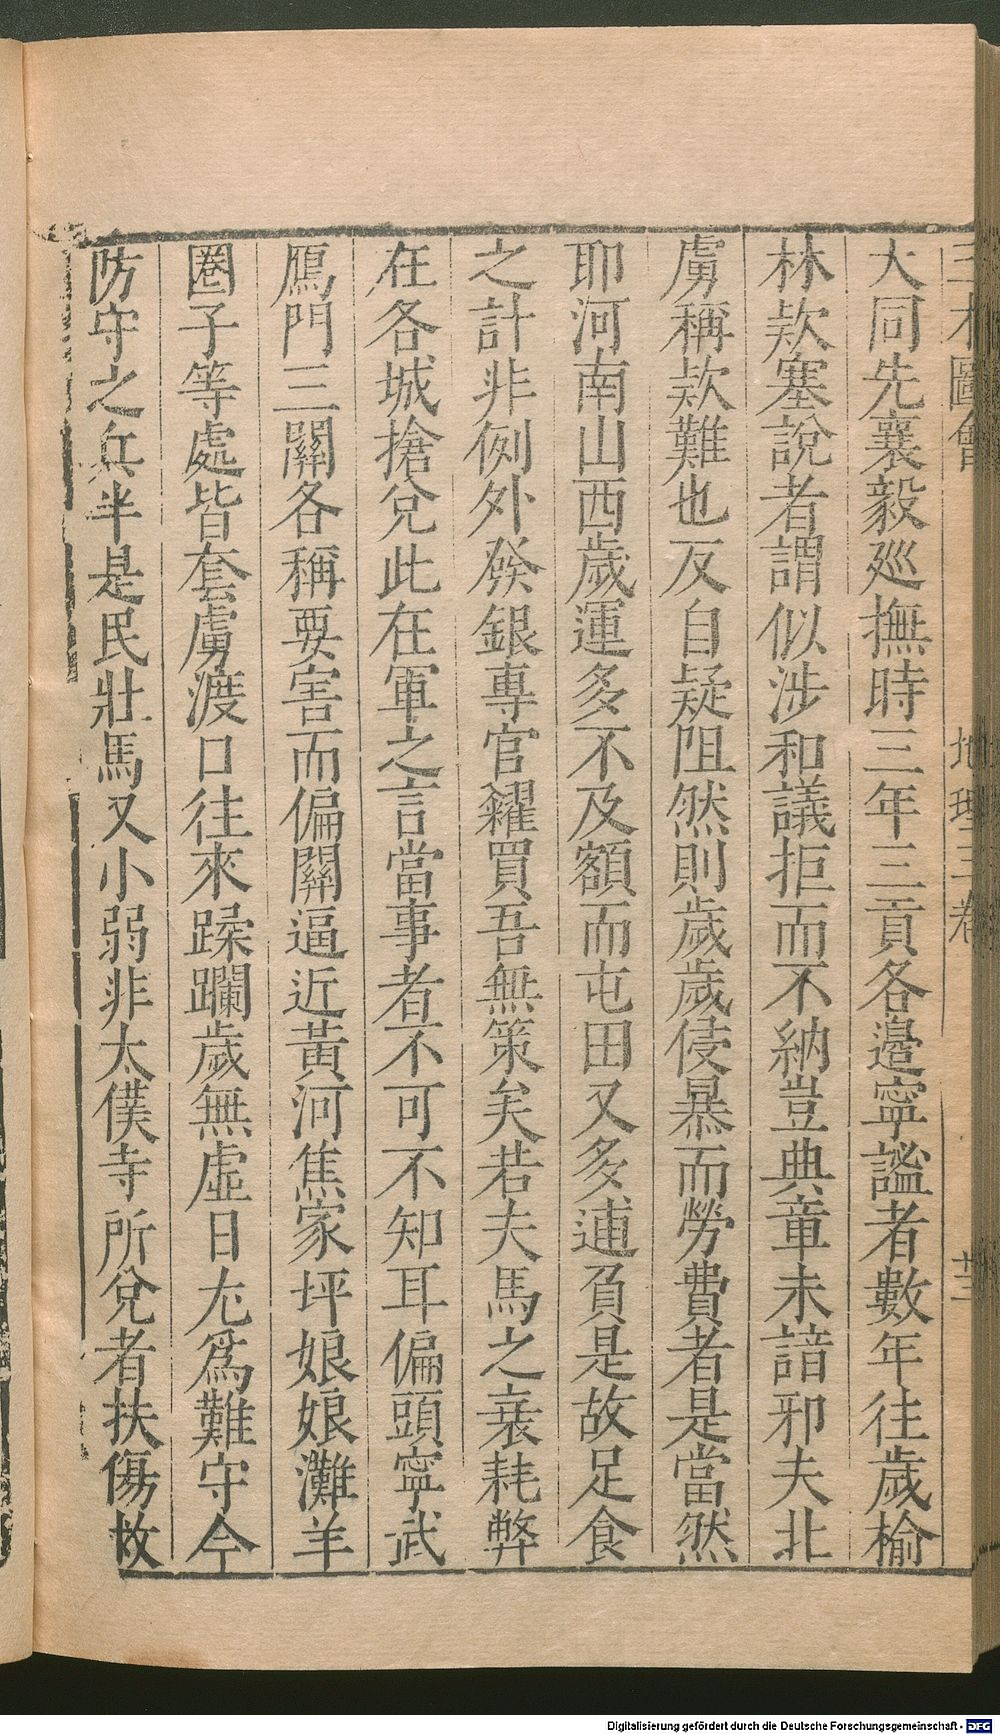 三才圖會 地理三卷 廿三
大同先襄毅廵撫時三年三貢各邉寧謐者數年往歲榆
林欵塞說者謂似涉和議拒而不納豈典章未諳邪夫北
虜稱欵難也反自疑阻然則歲歲侵暴而勞費者是當然
耶河南山西歲運多不及額而屯田又多逋負是故足食
之計非例外發銀專官糴買吾無策矣若夫馬之衰耗弊
在各城搶兌此在軍之言當事者不可不知耳偏頭寧武
鴈門三關各稱要害而偏關逼近黃河焦家坪娘娘灘羊
圈子等處皆套虜渡口往來蹂躝歲無虛日尤爲難守今
防守之兵半是民壯馬又小弱非太僕寺所兌者扶傷救
Digitalisierung gefördert durch die Deutsche Forschungsgemeinschaft - DFG